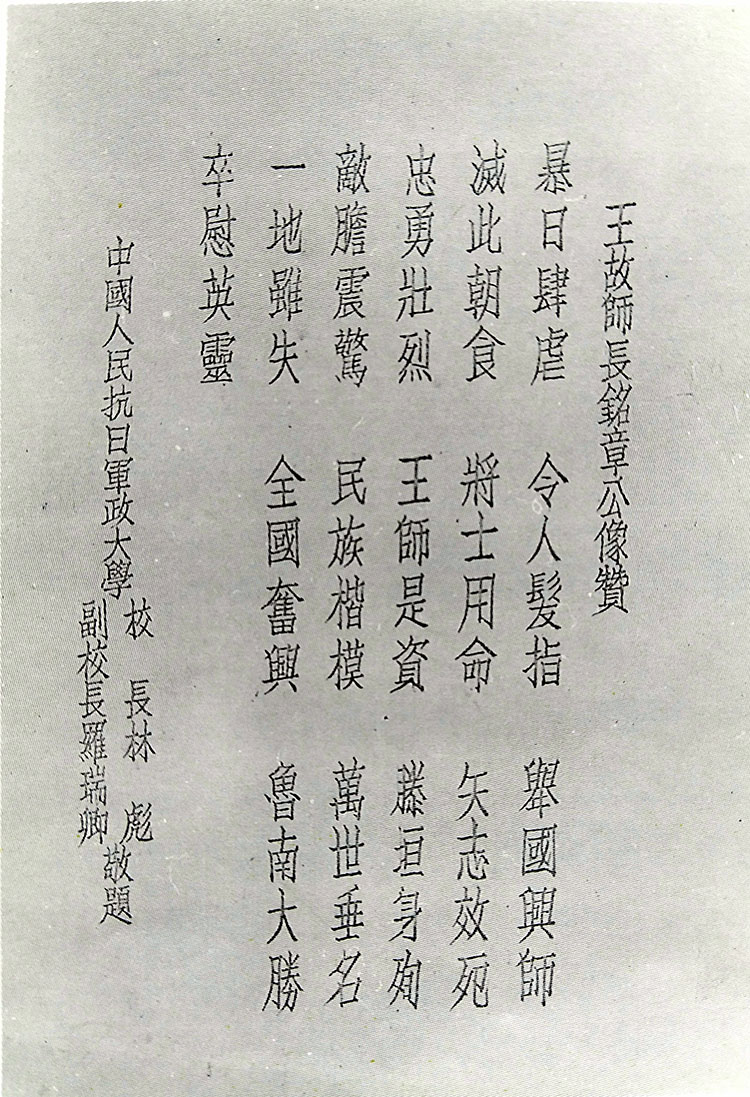 王故師長銘章公像贊
暴日肆虐　令人髮指　舉國興師
滅此朝食　將士用命　矢志效死
忠勇壯烈　王師是資　滕垣身殉
敵膽震驚　民族楷模　萬世垂名
一地雖失　全國奮興　魯南大勝
卒慰英靈
中國人民抗日軍政大學
校　長林　彪
副校長羅瑞卿
敬題